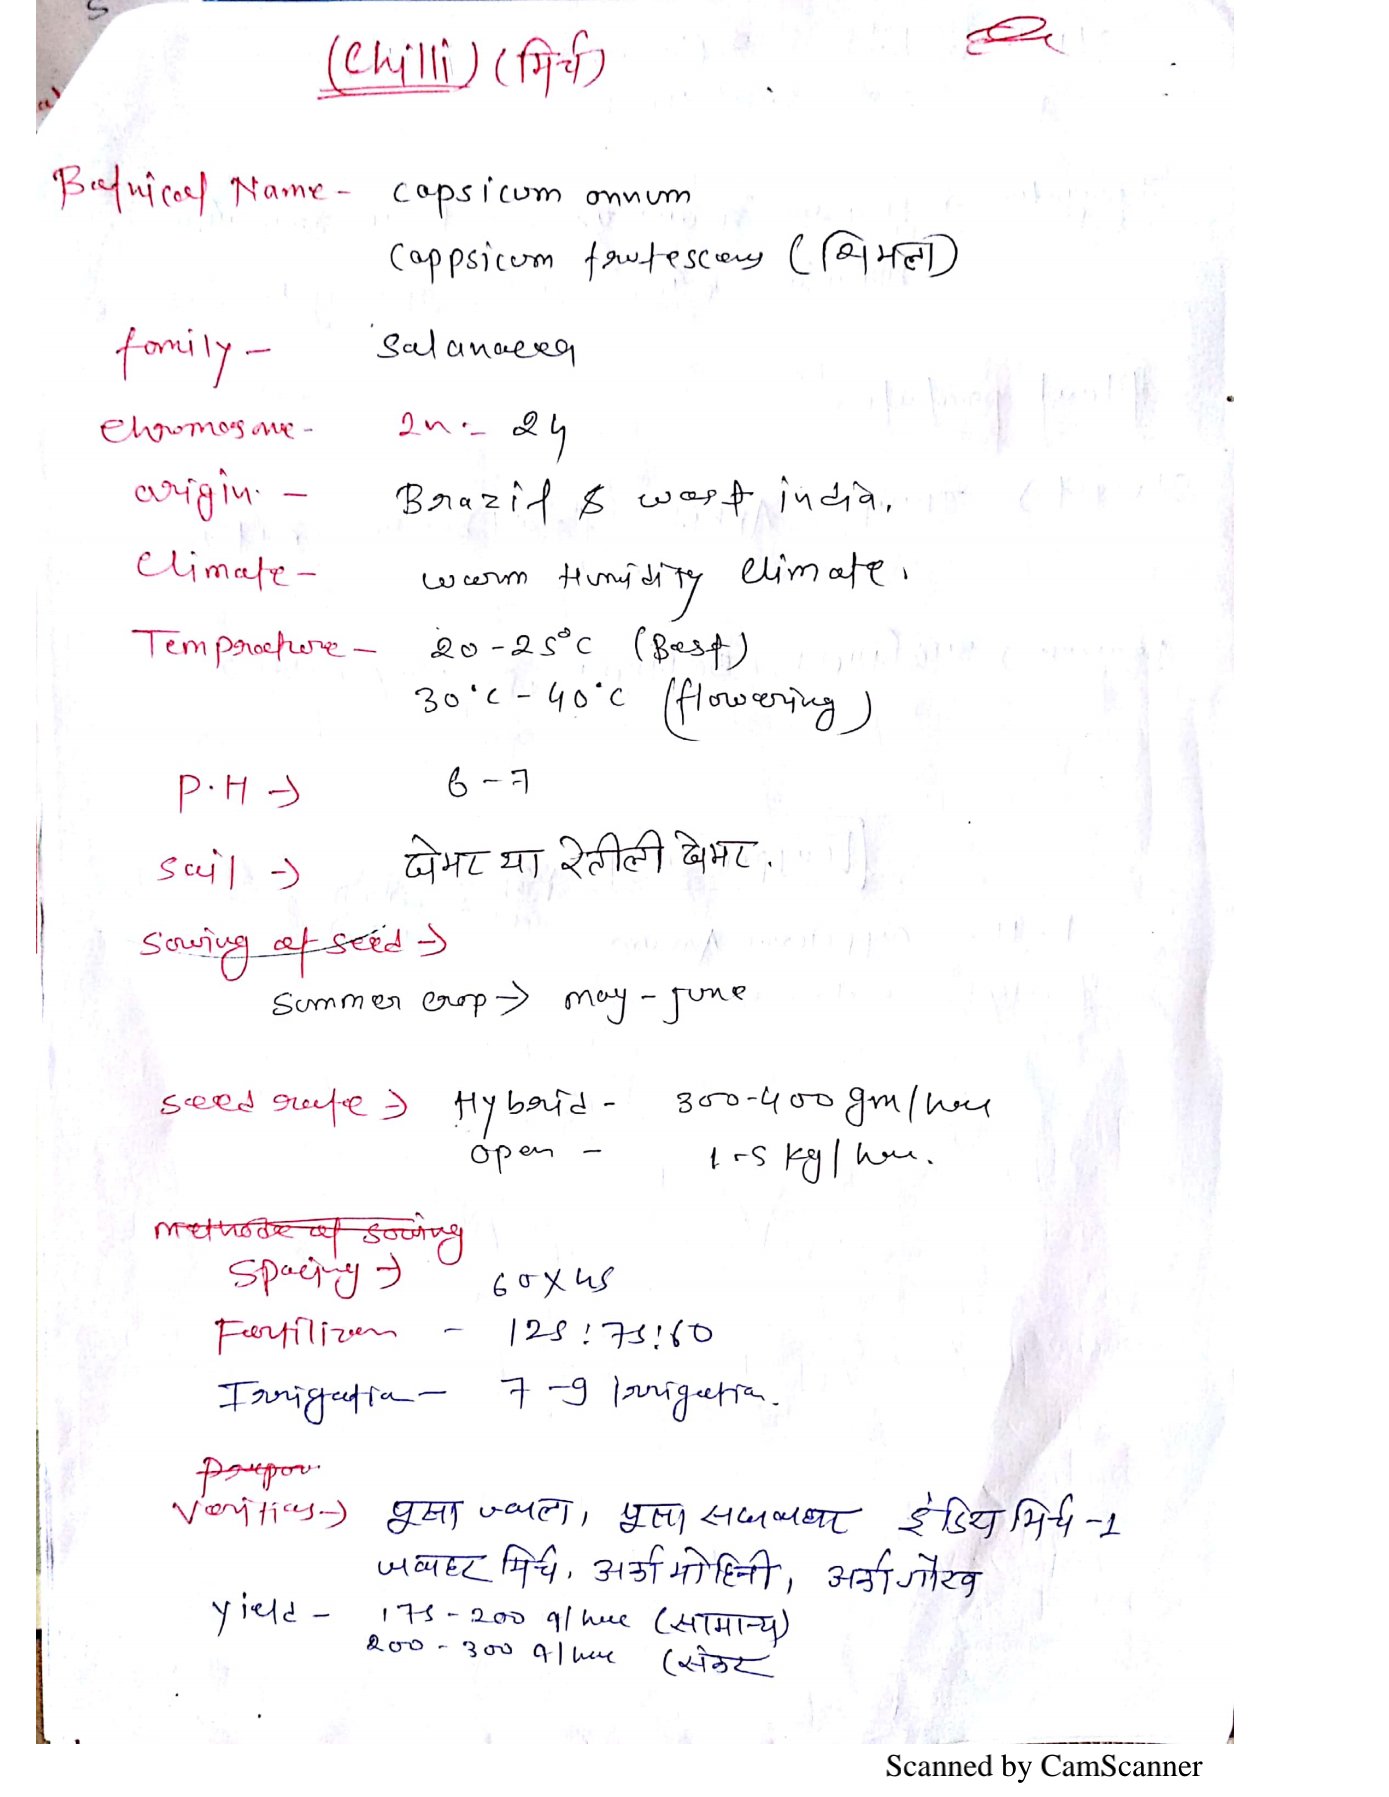 (Chilli) (मिर्च)
Botnical Name - Capsicum annum
Cappsicum frutescens (शिमला)
family - Salanaceea
Chromosome - 2n - 24
origin - Brazil & west india.
Climate - warm Humidity Climate.
Temprature - 20-25°C (Best)
30°C - 40°C (flowering)
P.H → 6-7
Soil → दोमट या रेतीली दोमट.
Sowing of seed →
Summer crop → may - june
Seed rate → Hybrid - 300-400 gm/hec
open - 1-5 kg/hec.
methode of sowing
Spacing → 60 X 45
Fertilizer - 125:75:60
Irrigation - 7-9 Irrigation.
Verities → पूसा ज्वाला, पूसा सदाबहार इंडिय मिर्च -1
जवाहर मिर्च, अर्का मोहिनी, अर्का गौरव
yield - 175-200 q/hec (सामान्य)
200-300 q/hec (संकर
Scanned by CamScanner